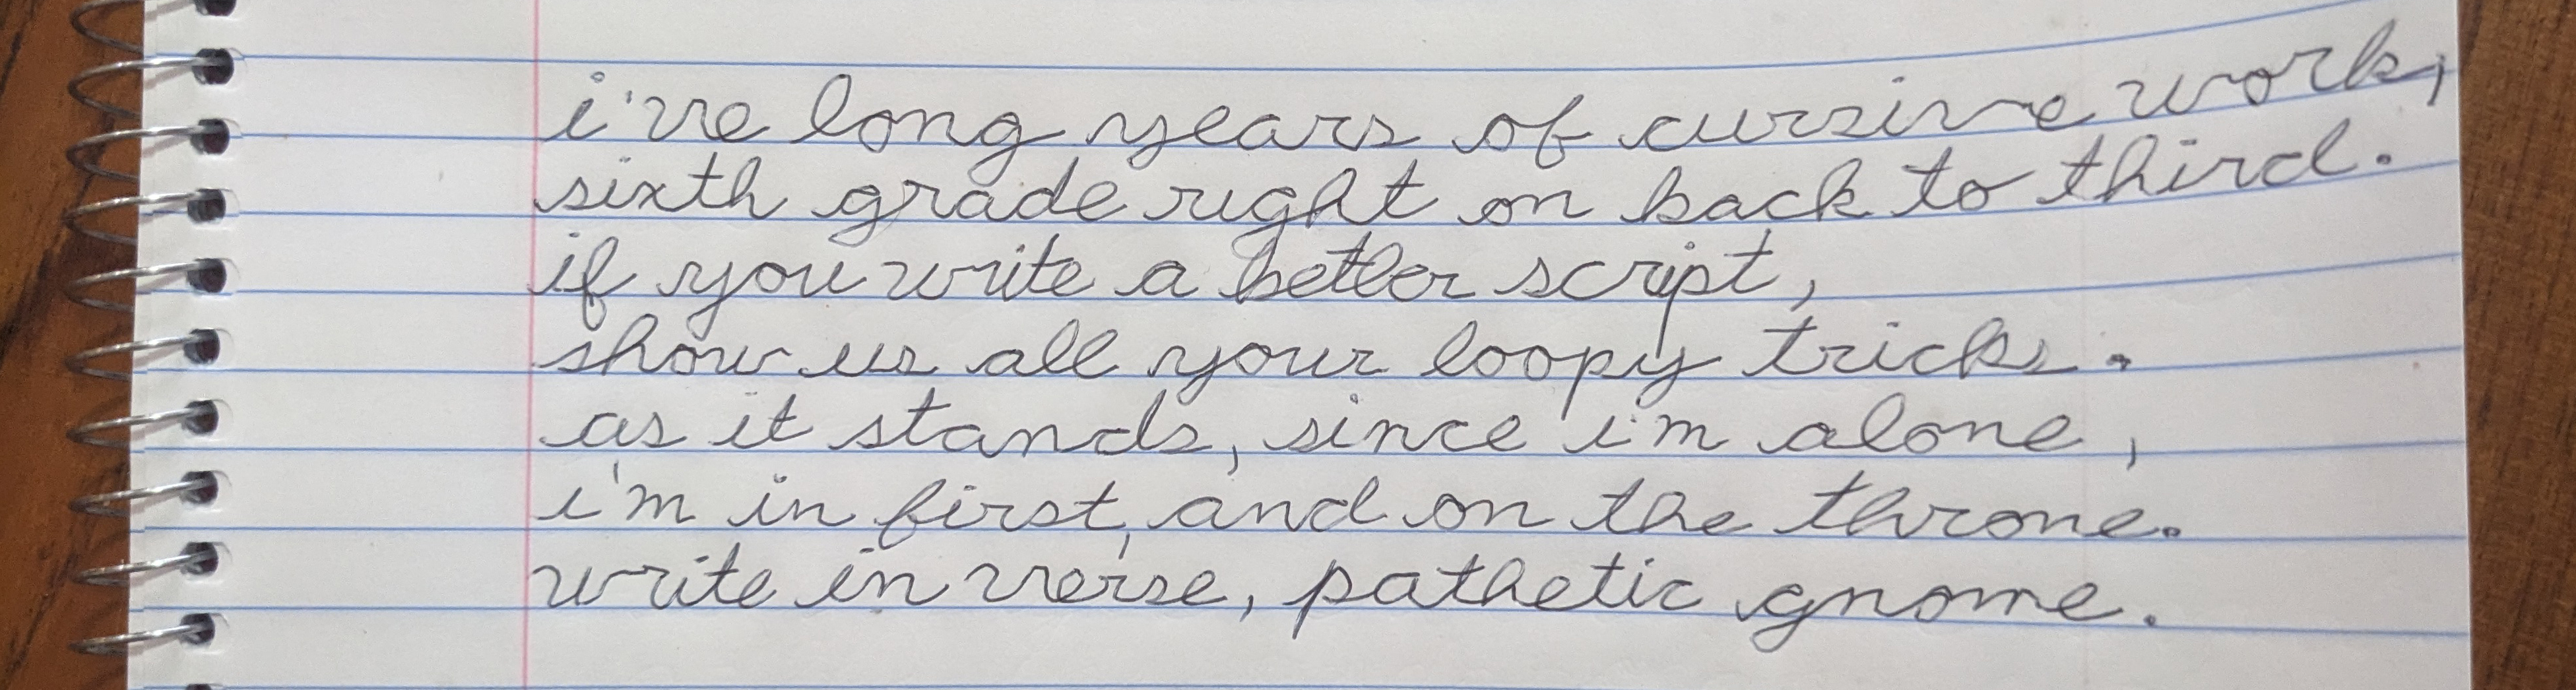 i've long years of cursive work,
sixth grade right on back to third.
if you write a better script,
show us all your loopy tricks.
as it stands, since i'm alone,
i'm in first, and on the throne.
write in verse, pathetic gnome.